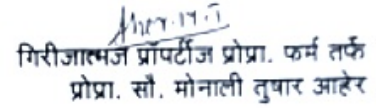 गिरीजात्मज प्रॉपर्टीज प्रोप्रा. फर्म तर्फे
प्रोप्रा. सौ. मोनाली तुषार आहेर